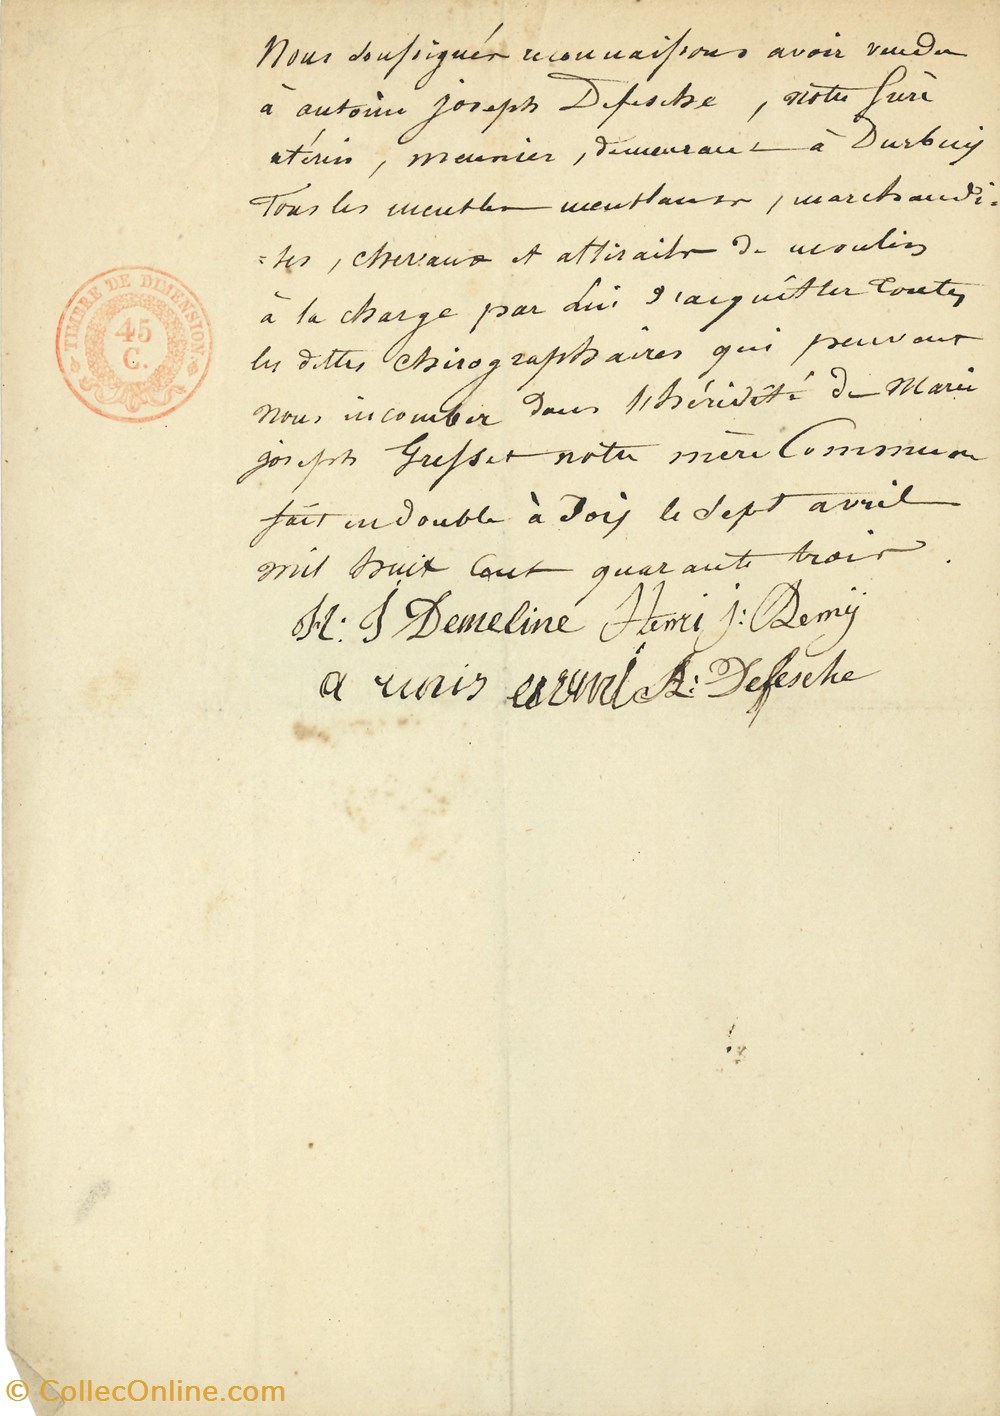 Nous soussignés reconnaissons avoir vendu
à antoine joseph Defesche, notre frère
utérin, meunier, demeurant à Durbuy
Tous les meubles meublants, marchandi=
=ses, chevaux et attirails de moulin
à la charge par lui d'acquitter toutes
les dettes chirographaires qui peuvent
nous incomber dans l'hérédité de Marie
joseph Gresset notre mère Commune
fait en double à le sept avril
mil huit cent quarante trois.
H: J Demeline Henri j: Remÿ
A: Defesche
TIMBRE DE DIMENSION
45
C.
© CollecOnline.com